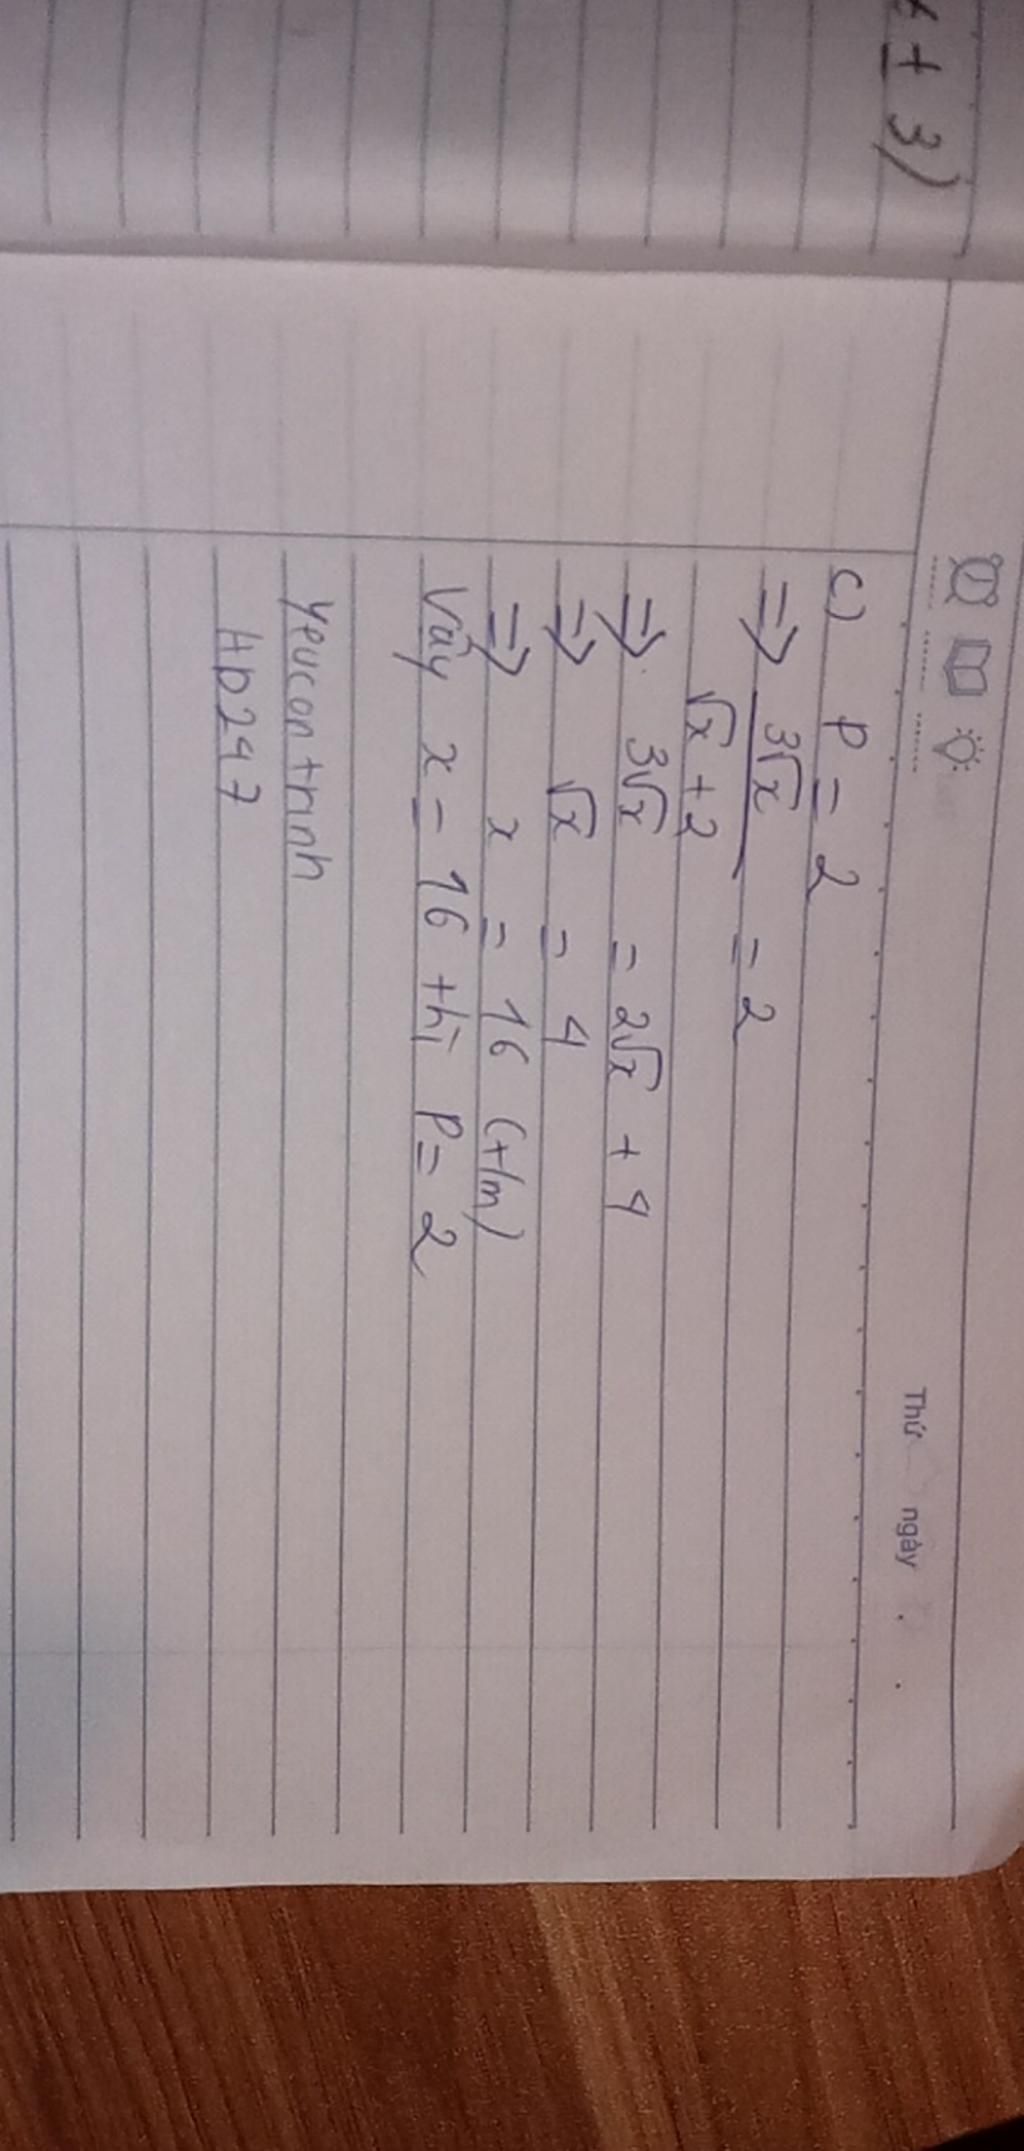 x + 3)
Thứ ngày
c) P = 2
⇒ 3√x / √x + 2 = 2
⇒ 3√x = 2√x + 4
⇒ √x = 4
⇒ x = 16 (t/m)
Vậy x = 16 thì P = 2
yeucontrinh
HD247